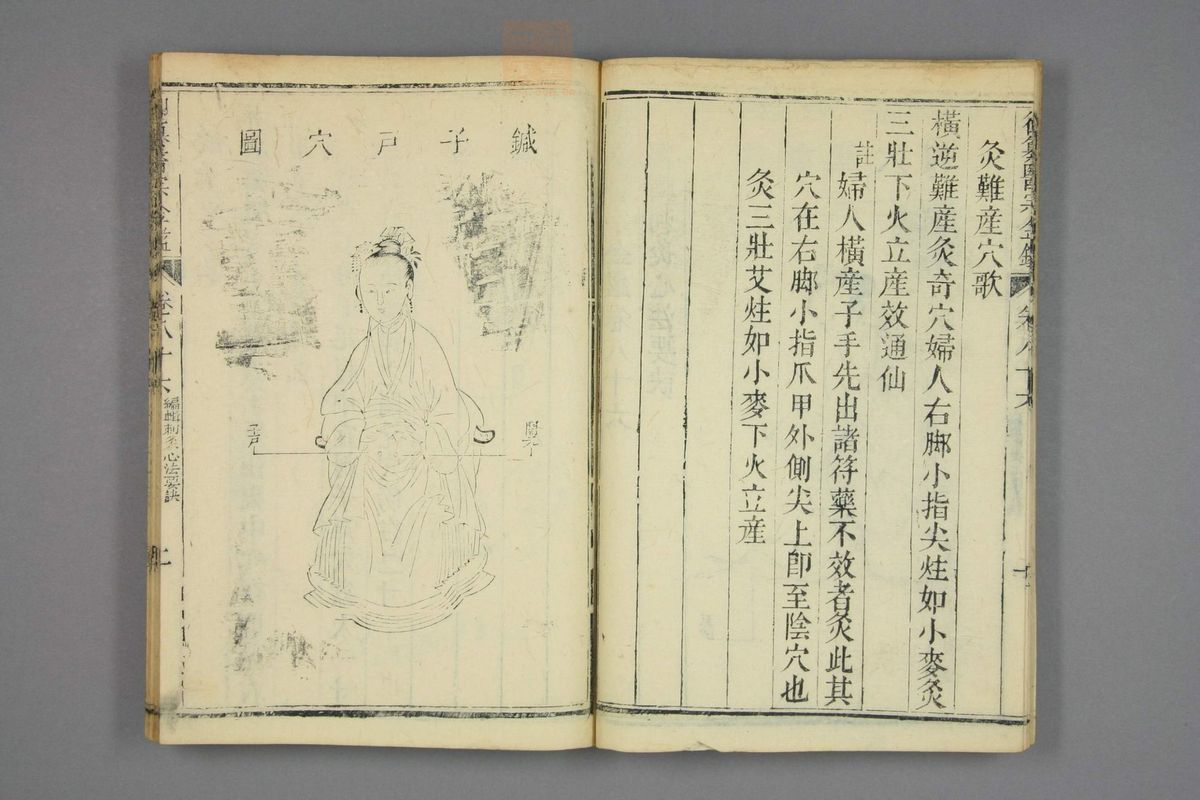 灸難産穴歌
橫逆難産灸奇穴婦人右脚小指尖炷如小麥灸
三壯下火立産效通仙
註
婦人橫産子手先出諸符藥不效者灸此其
穴在右脚小指爪甲外側尖上卽至陰穴也
灸三壯艾炷如小麥下火立産
鍼子戸穴圖
關元
子戸
卷八十六
編輯刺灸心法要訣